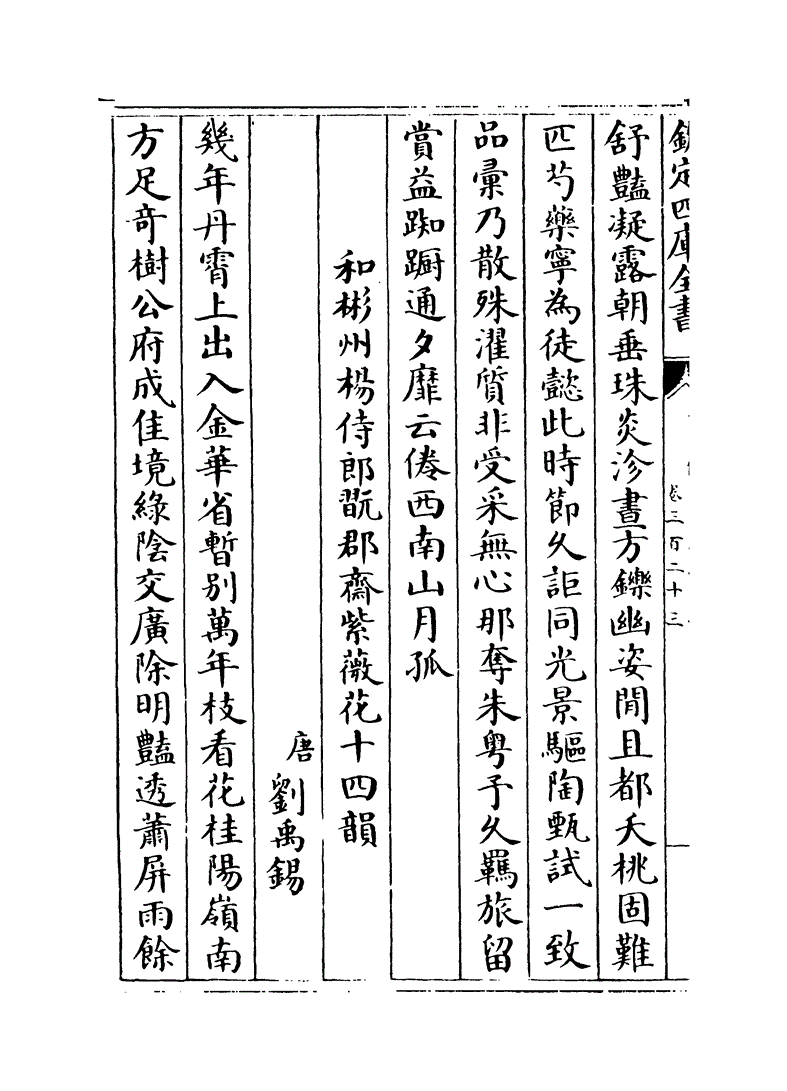 欽定四庫全書
卷三百二十三
舒豔凝露朝垂珠炎沴晝方鑠幽姿閒且都夭桃固難
匹芍藥寧為徒懿此時節久詎同光景驅陶甄試一致
品彚乃散殊濯質非受采無心那奪朱粤予久羈旅留
賞益踟蹰通夕靡云倦西南山月孤
和彬州楊侍郎翫郡齋紫薇花十四韻
唐劉禹錫
幾年丹霄上出入金華省暫别萬年枝看花桂陽嶺南
方足奇樹公府成佳境緑陰交廣除明豔透蕭屏雨餘